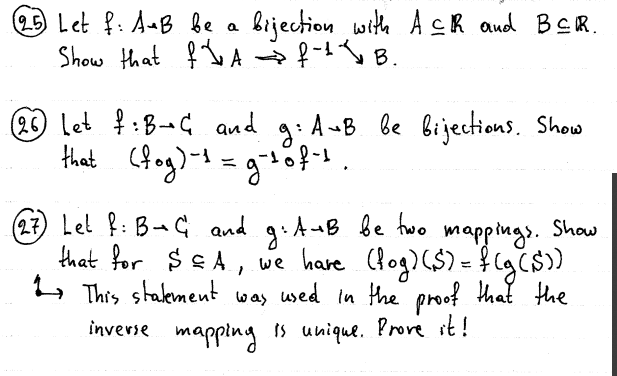 (25) Let f: A→B be a bijection with A ⊆ ℝ and B ⊆ ℝ.
Show that f ↘ A ⇒ f⁻¹ ↘ B.
(26) Let f: B→C and g: A→B be bijections. Show
that (f∘g)⁻¹ = g⁻¹∘f⁻¹.
(27) Let f: B→C and g: A→B be two mappings. Show
that for S ⊆ A, we have (f∘g)(S) = f(g(S))
↳ This statement was used in the proof that the
inverse mapping is unique. Prove it!